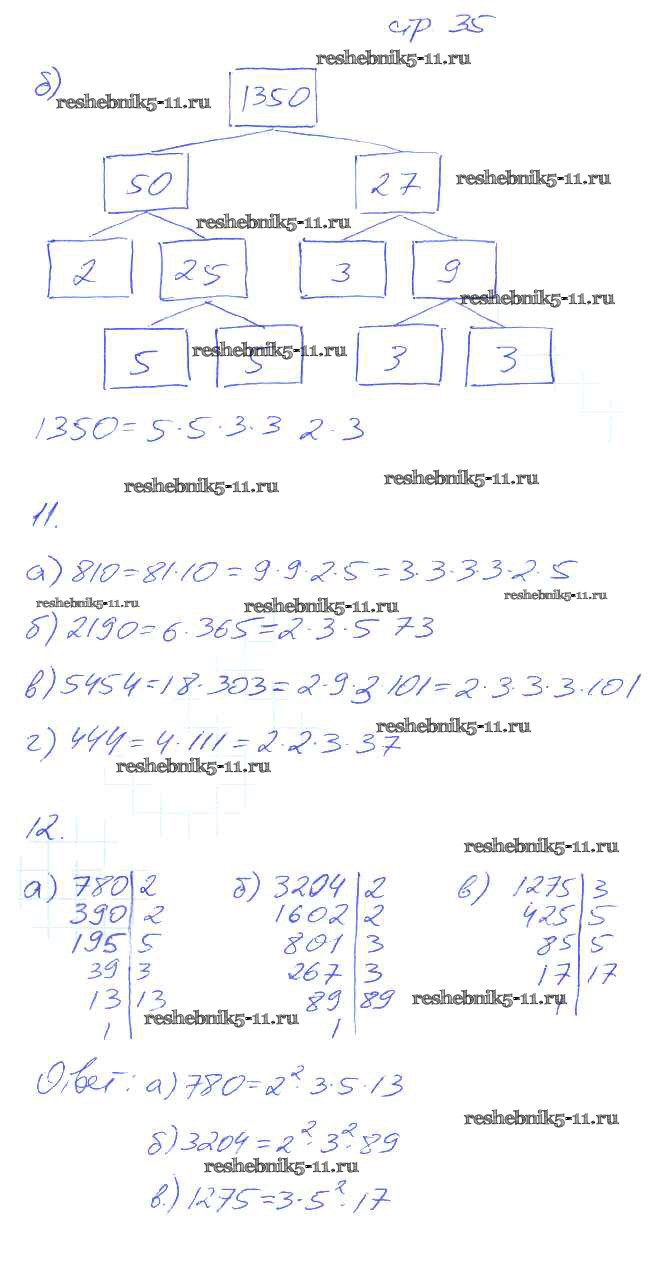 стр 35
reshebnik5-11.ru
б)
reshebnik5-11.ru
1350
50
27
reshebnik5-11.ru
reshebnik5-11.ru
2
25
3
9
reshebnik5-11.ru
reshebnik5-11.ru
5
5
3
3
1350=5·5·3·3 2·3
reshebnik5-11.ru
reshebnik5-11.ru
11.
а) 810=81·10=9·9·2·5=3·3·3·3·2·5
reshebnik5-11.ru
reshebnik5-11.ru
reshebnik5-11.ru
б) 2190=6·365=2·3·5 73
в) 5454=18·303=2·9·3·101=2·3·3·3·101
reshebnik5-11.ru
г) 444=4·111=2·2·3·37
reshebnik5-11.ru
12.
reshebnik5-11.ru
а) 780|2 б) 3204|2 в) 1275|3
390|2 1602|2 425|5
195|5 801|3 85|5
39|3 267|3 17|17
13|13 89|89 1|
reshebnik5-11.ru
1| 1|
reshebnik5-11.ru
Ответ: а) 780=2²·3·5·13
reshebnik5-11.ru
б) 3204=2²·3²·89
reshebnik5-11.ru
в) 1275=3·5²·17